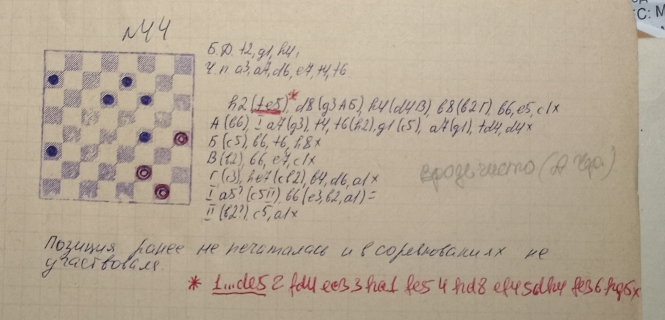 №44
Б.Д. f2, g1, h4,
Ч.п a3, a7, d6, e7, f4, f6
h2 (fe5)*, d8 (g3 А Б), h4 (d4 В), b8 (b2 Г), b6, e5, c1x
А (b6), I a7 (g3), f4, f6 (h2), g1 (c5), a7 (g1), fd4, d4x
Б (c5), b6, f6, h8x
В (b2), b6, e7, c1x
Г (c3), he7 (cb2), b4, d6, a1x
I a5? (c5 II) b6 (e3, b2, a1) =
II (b2?) c5, a1x
Позиция ранее не печаталась и в соревнованиях не
участвовала.
* 1...de5 2 fd4 ec3 3 ha1 fe5 4 hd8 ef4 5 dh4 fe3 6. hg5x